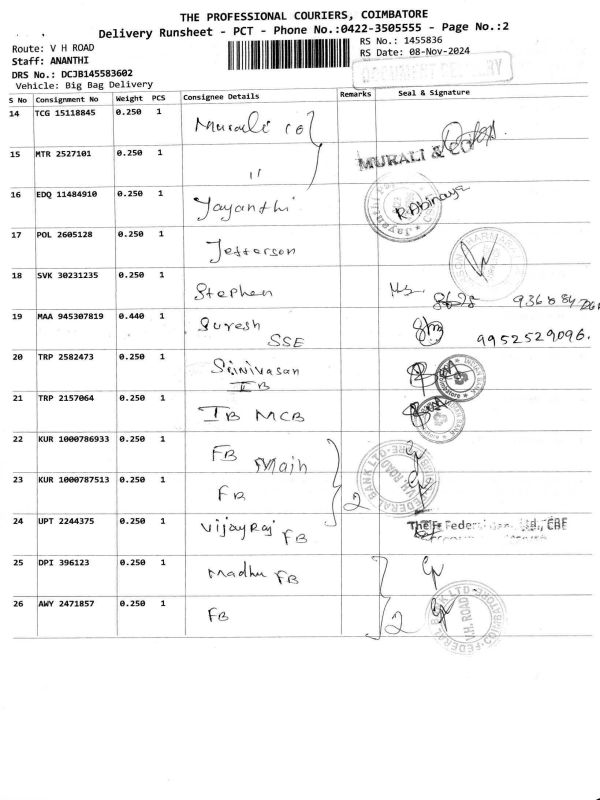 THE PROFESSIONAL COURIERS, COIMBATORE
Delivery Runsheet - PCT - Phone No.:0422-3505555 - Page No.:2
Route: V H ROAD
RS No.: 1455836
Staff: ANANTHI
RS Date: 08-Nov-2024
DRS No.: DCJB145583602
DOCUMENT DELIVERY
Vehicle: Big Bag Delivery
S No Consignment No Weight PCS Consignee Details Remarks Seal & Signature
14 TCG 15118845 0.250 1 Murali co
15 MTR 2527101 0.250 1 " MURALI & CO
16 EDQ 11484910 0.250 1 Jayanthi R.Abinaya
17 POL 2605128 0.250 1 Jefferson
18 SVK 30231235 0.250 1 Stephen
19 MAA 945307819 0.440 1 Suresh SSE 9952529096.
20 TRP 2582473 0.250 1 Srinivasan IB INDIAN BANK
21 TRP 2157064 0.250 1 IB MCB
22 KUR 1000786933 0.250 1 FB Main FEDERAL BANK LTD. V.H. ROAD COIMBATORE
23 KUR 1000787513 0.250 1 FB 2
24 UPT 2244375 0.250 1 Vijayraj FB The Federal Ltd., CBE
25 DPI 396123 0.250 1 Madhu FB
26 AWY 2471857 0.250 1 FB 2 FEDERAL BANK LTD. V.H. ROAD COIMBATORE